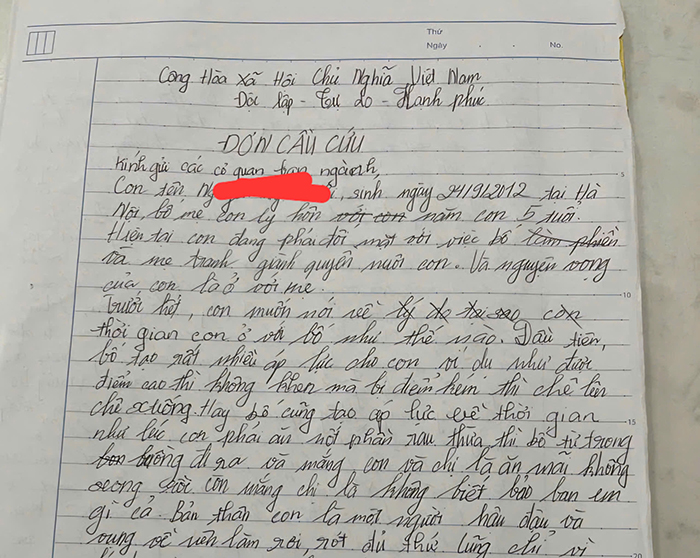 Thứ
Ngày . . No.
Cộng Hòa Xã Hội Chủ Nghĩa Việt Nam
Độc lập - Tự do - Hạnh phúc
ĐƠN CẦU CỨU
Kính gửi các cơ quan ban ngành,
Con tên Ng , sinh ngày 24/9/2012 tại Hà
Nội, bố mẹ con ly hôn với con năm con 5 tuổi.
Hiện tại con đang phải đối mặt với việc bố làm phiền
và mẹ tranh giành quyền nuôi con. Và nguyện vọng
của con là ở với mẹ.
Trước hết, con muốn nói về lý do tại sao con
thời gian con ở với bố như thế nào. Đầu tiên,
bố tạo rất nhiều áp lực cho con ví dụ như được
điểm cao thì không khen mà bị điểm kém thì chê lên
chê xuống. Hay bố cũng tạo áp lực về thời gian
như lúc con phải ăn nốt phần rau thừa thì bố từ trong
đi ra và mắng con và chị là ăn mãi không
xong rồi còn mắng chị là không biết bảo ban em
gì cả. Bản thân con là một người hậu đậu và
vụng về nên làm rơi, rớt đủ thứ cũng chỉ vì
5
10
15
20
5